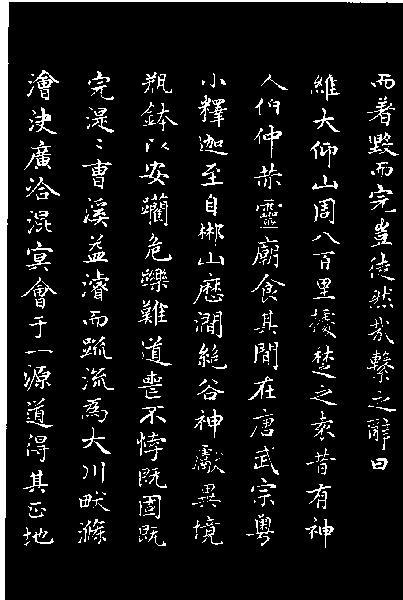 而著毀而完豈徒然哉繫之辭曰
維大仰山周八百里楚之昔有神
人伯仲恭靈廟食其間在唐武宗粵
小釋迦至自郴山歷澗絕谷神獻異境
瓶鉢以安躪危躒難道喪不悖既固既
完湜〻曹溪益濬而疏流為大川畎滌
澮決廣洽混冥會于一源道得其正地